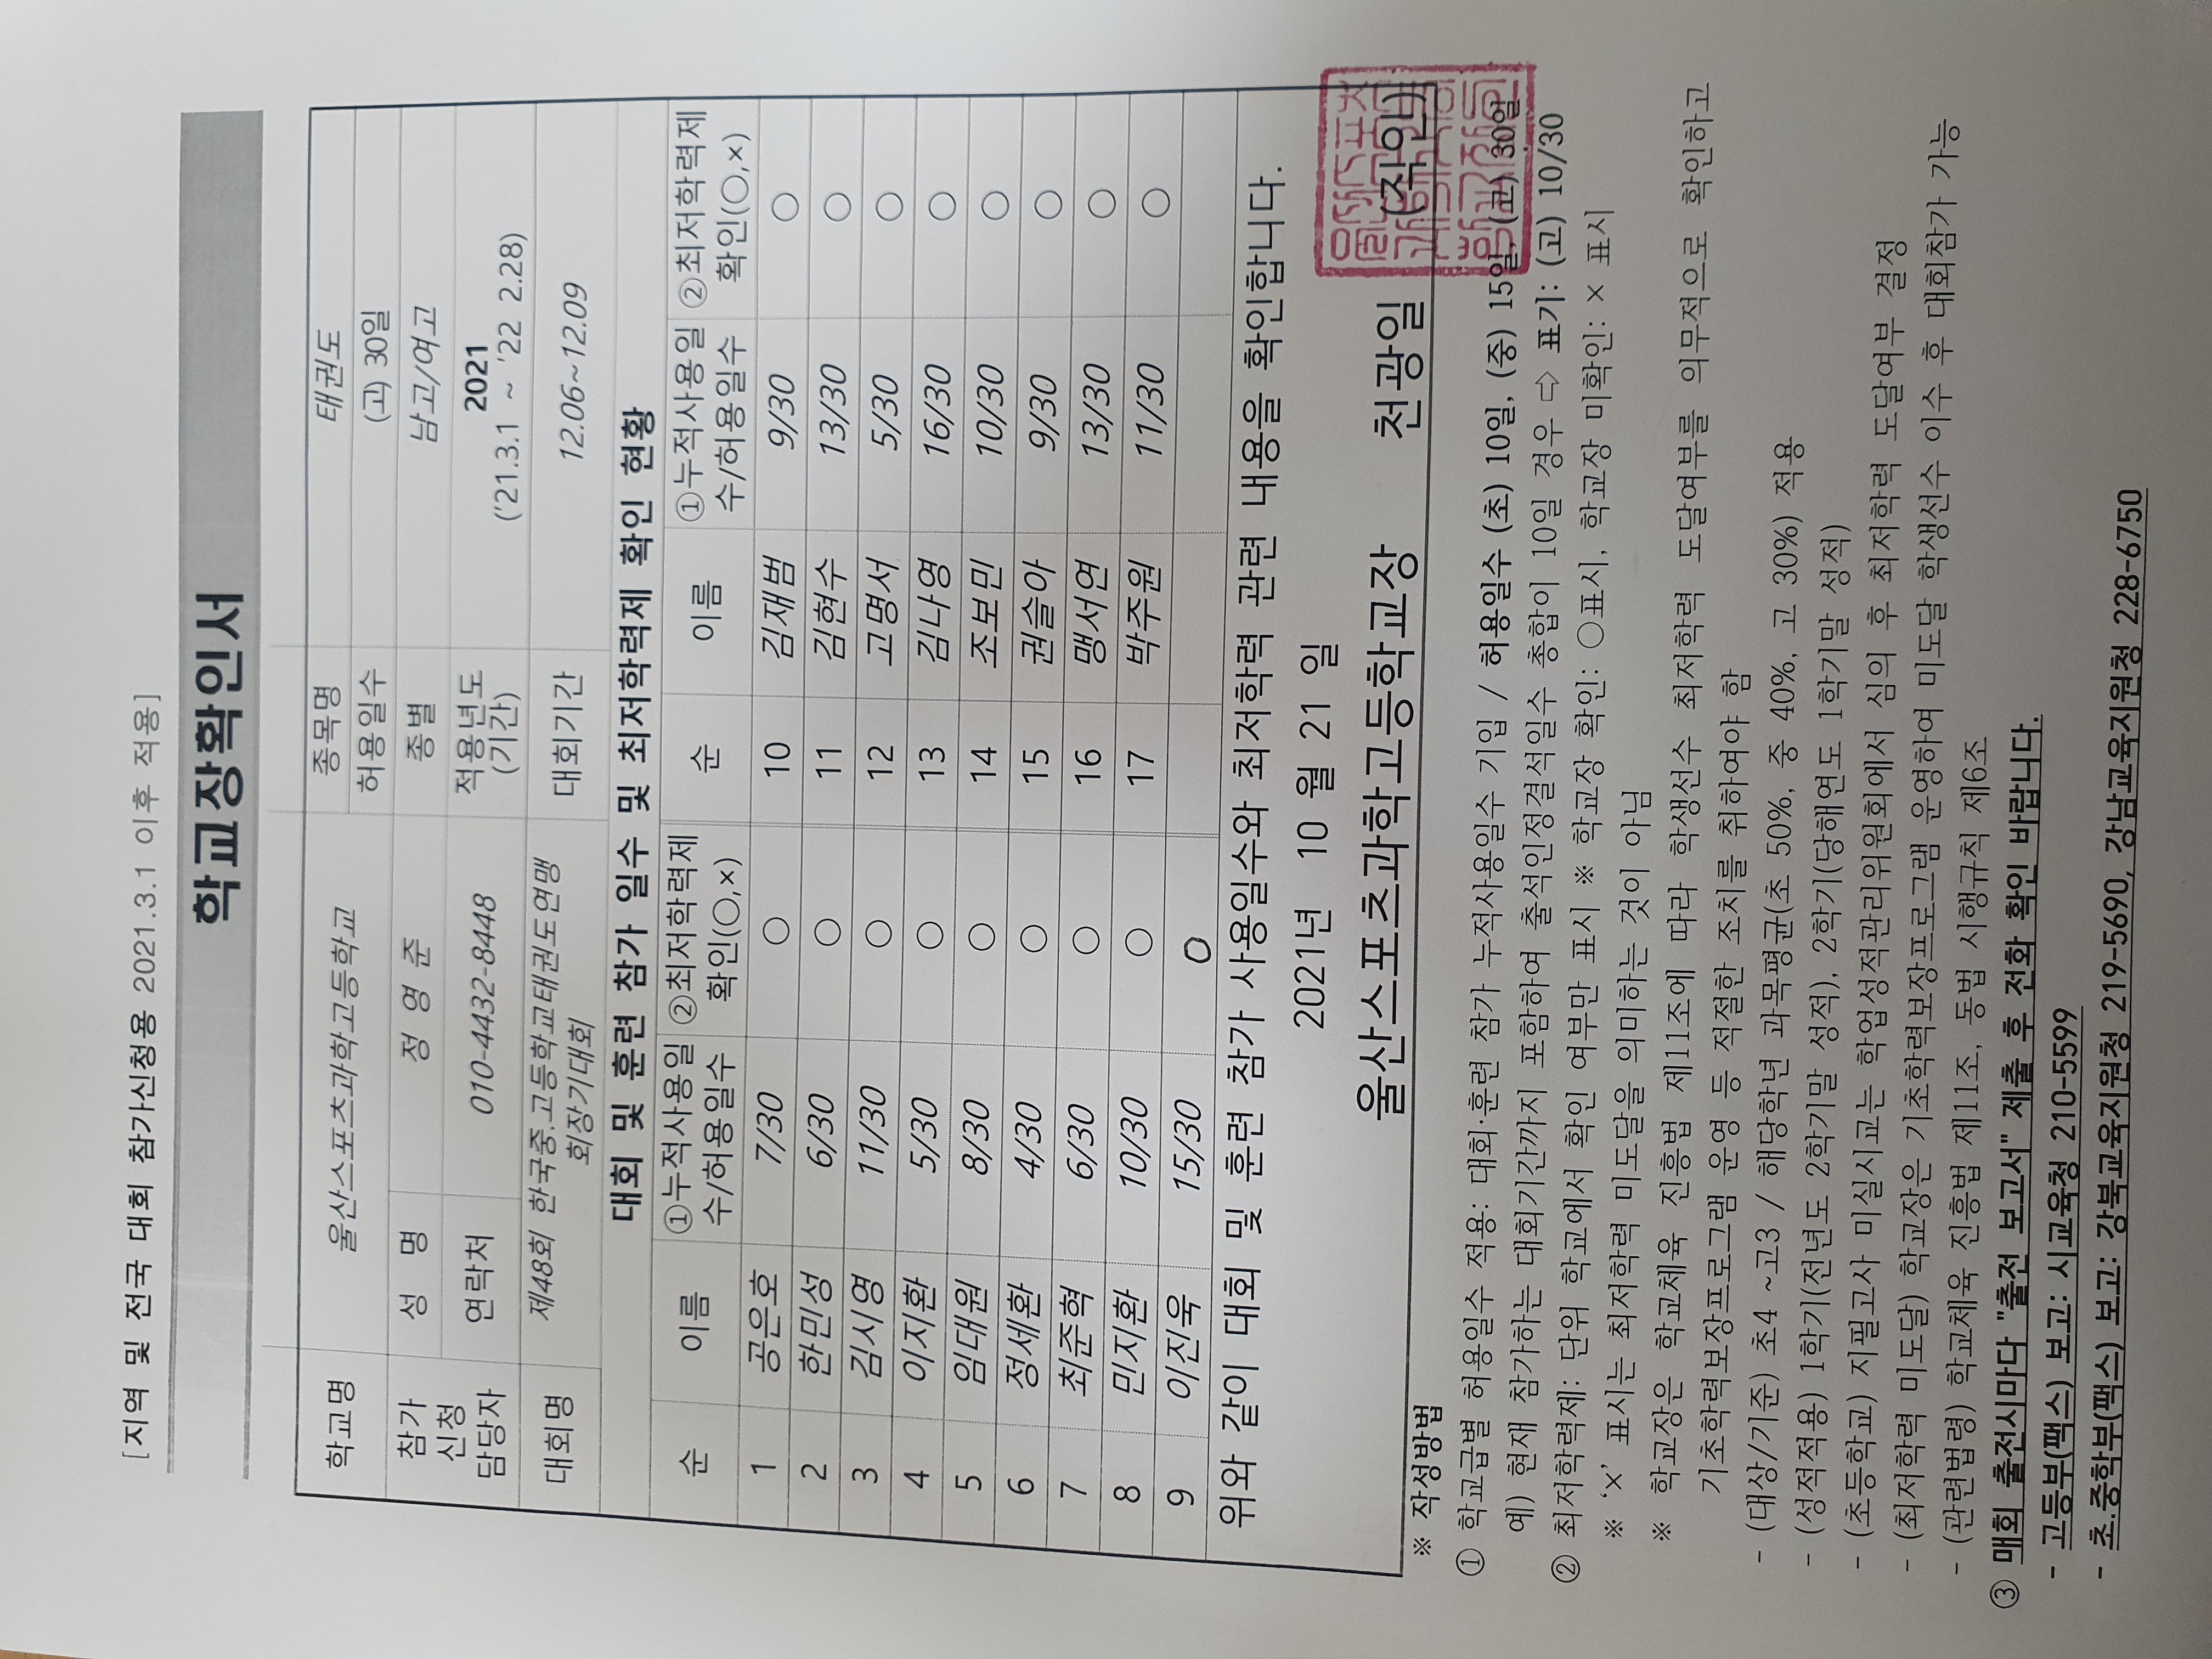 [지역 및 전국 대회 참가신청용 2021.3.1 이후 적용]
학교장확인서
학교명 울산스포츠과학고등학교 종목명 태권도
허용일수 (고) 30일
참가 신청 담당자 성 명 정 영 준 종별 남고/여고
연락처 010-4432-8448 적용년도 (기간) 2021 ('21.3.1 ~ '22 2.28)
대회명 제48회 한국중.고등학교태권도연맹 회장기대회 대회기간 12.06~12.09
대회 및 훈련 참가 일수 및 최저학력제 확인 현황
순 이름 ①누적사용일수/허용일수 ②최저학력제 확인(○,×) 순 이름 ①누적사용일수/허용일수 ②최저학력제 확인(○,×)
1 공은호 7/30 ○ 10 김재범 9/30 ○
2 한민성 6/30 ○ 11 김현수 13/30 ○
3 김시영 11/30 ○ 12 고명서 5/30 ○
4 이지환 5/30 ○ 13 김나영 16/30 ○
5 임대원 8/30 ○ 14 조보민 10/30 ○
6 정세환 4/30 ○ 15 권슬아 9/30 ○
7 최준혁 6/30 ○ 16 맹서연 13/30 ○
8 민지환 10/30 ○ 17 박주원 11/30 ○
9 이진욱 15/30 ○
위와 같이 대회 및 훈련 참가 사용일수와 최저학력 관련 내용을 확인합니다.
2021년 10 월 21 일
울산스포츠과학고등학교장 천광일 (직인)
※ 작성방법
① 학교급별 허용일수 적용: 대회·훈련 참가 누적사용일수 기입 / 허용일수 (초) 10일, (중) 15일, (고) 30일
예) 현재 참가하는 대회기간까지 포함하여 출석인정결석일수 총합이 10일 경우 ⇨ 표기: (고) 10/30
② 최저학력제: 단위 학교에서 확인 여부만 표시 ※ 학교장 확인: ○표시, 학교장 미확인: × 표시
※ '×' 표시는 최저학력 미도달을 의미하는 것이 아님
※ 학교장은 학교체육 진흥법 제11조에 따라 학생선수 최저학력 도달여부를 의무적으로 확인하고
기초학력보장프로그램 운영 등 적절한 조치를 취하여야 함
- (대상/기준) 초4 ~고3 / 해당학년 과목평균(초 50%, 중 40%, 고 30%) 적용
- (성적적용) 1학기(전년도 2학기말 성적), 2학기(당해연도 1학기말 성적)
- (초등학교) 지필고사 미실시교는 학업성적관리위원회에서 심의 후 최저학력 도달여부 결정
- (최저학력 미도달) 학교장은 기초학력보장프로그램 운영하여 미도달 학생선수 이수 후 대회참가 가능
- (관련법령) 학교체육 진흥법 제11조, 동법 시행규칙 제6조
③ 매회 출전시마다 "출전 보고서" 제출 후 전화 확인 바랍니다.
- 고등부(팩스) 보고: 시교육청 210-5599
- 초.중학부(팩스) 보고: 강북교육지원청 219-5690, 강남교육지원청 228-6750